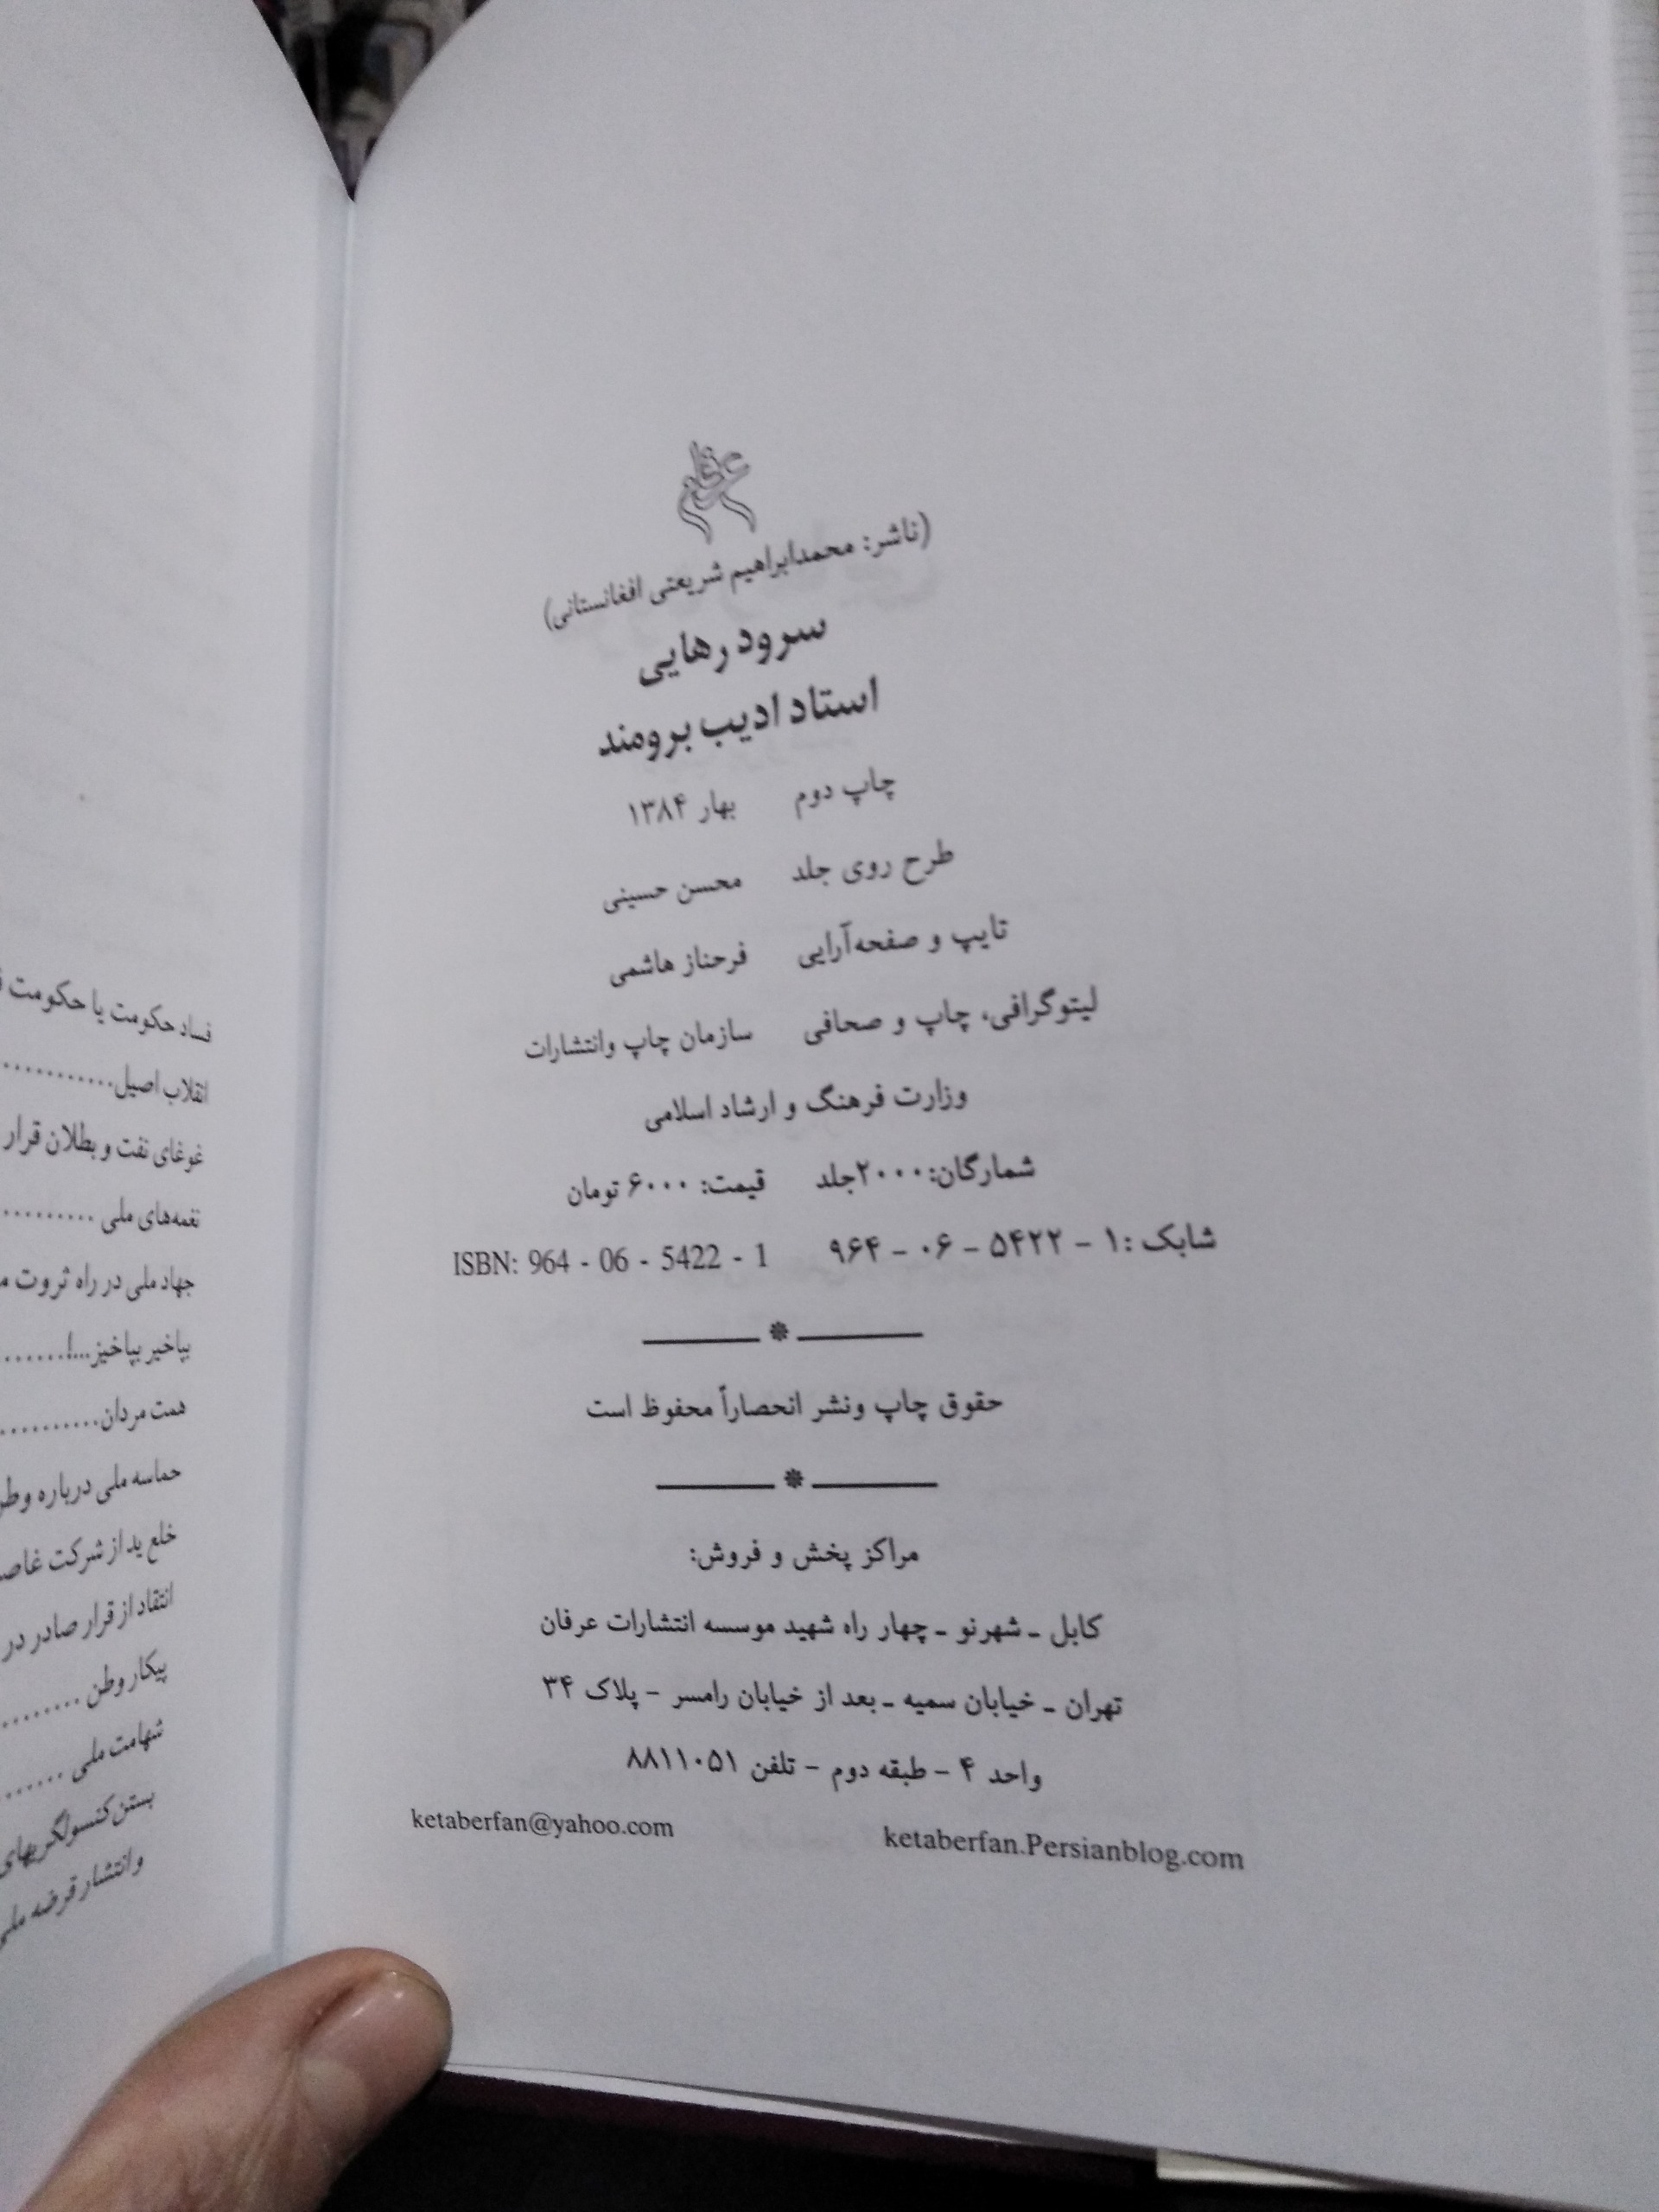 عرفان
(ناشر: محمدابراهیم شریعتی افغانستانی)
سرود رهایی
استاد ادیب برومند
چاپ دوم بهار ۱۳۸۴
طرح روی جلد محسن حسینی
تایپ و صفحه‌آرایی فرحناز هاشمی
لیتوگرافی، چاپ و صحافی سازمان چاپ وانتشارات
وزارت فرهنگ و ارشاد اسلامی
شمارگان:۲۰۰۰جلد قیمت: ۶۰۰۰ تومان
شابک :۱ – ۵۴۲۲ – ۰۶ – ۹۶۴ ISBN: 964 - 06 - 5422 - 1
حقوق چاپ ونشر انحصاراً محفوظ است
مراکز پخش و فروش:
کابل ـ شهرنو ـ چهار راه شهید موسسه انتشارات عرفان
تهران ـ خیابان سمیه ـ بعد از خیابان رامسر – پلاک ۳۴
واحد ۴ – طبقه دوم – تلفن ۸۸۱۱۰۵۱
ketaberfan@yahoo.com ketaberfan.Persianblog.com
فساد حکومت یا حکومت
انقلاب اصیل...........
غوغای نفت و بطلان قرار
نغمه‌های ملی ..........
جهاد ملی در راه ثروت
بپاخیر بپاخیز...!.......
همت مردان...........
حماسه ملی درباره
خلع ید از شرکت
انتقاد از قرار صادر در
پیکار وطن .........
شهامت ملی .......
بستن کنسولگریهای
و انتشار قرضه ملی